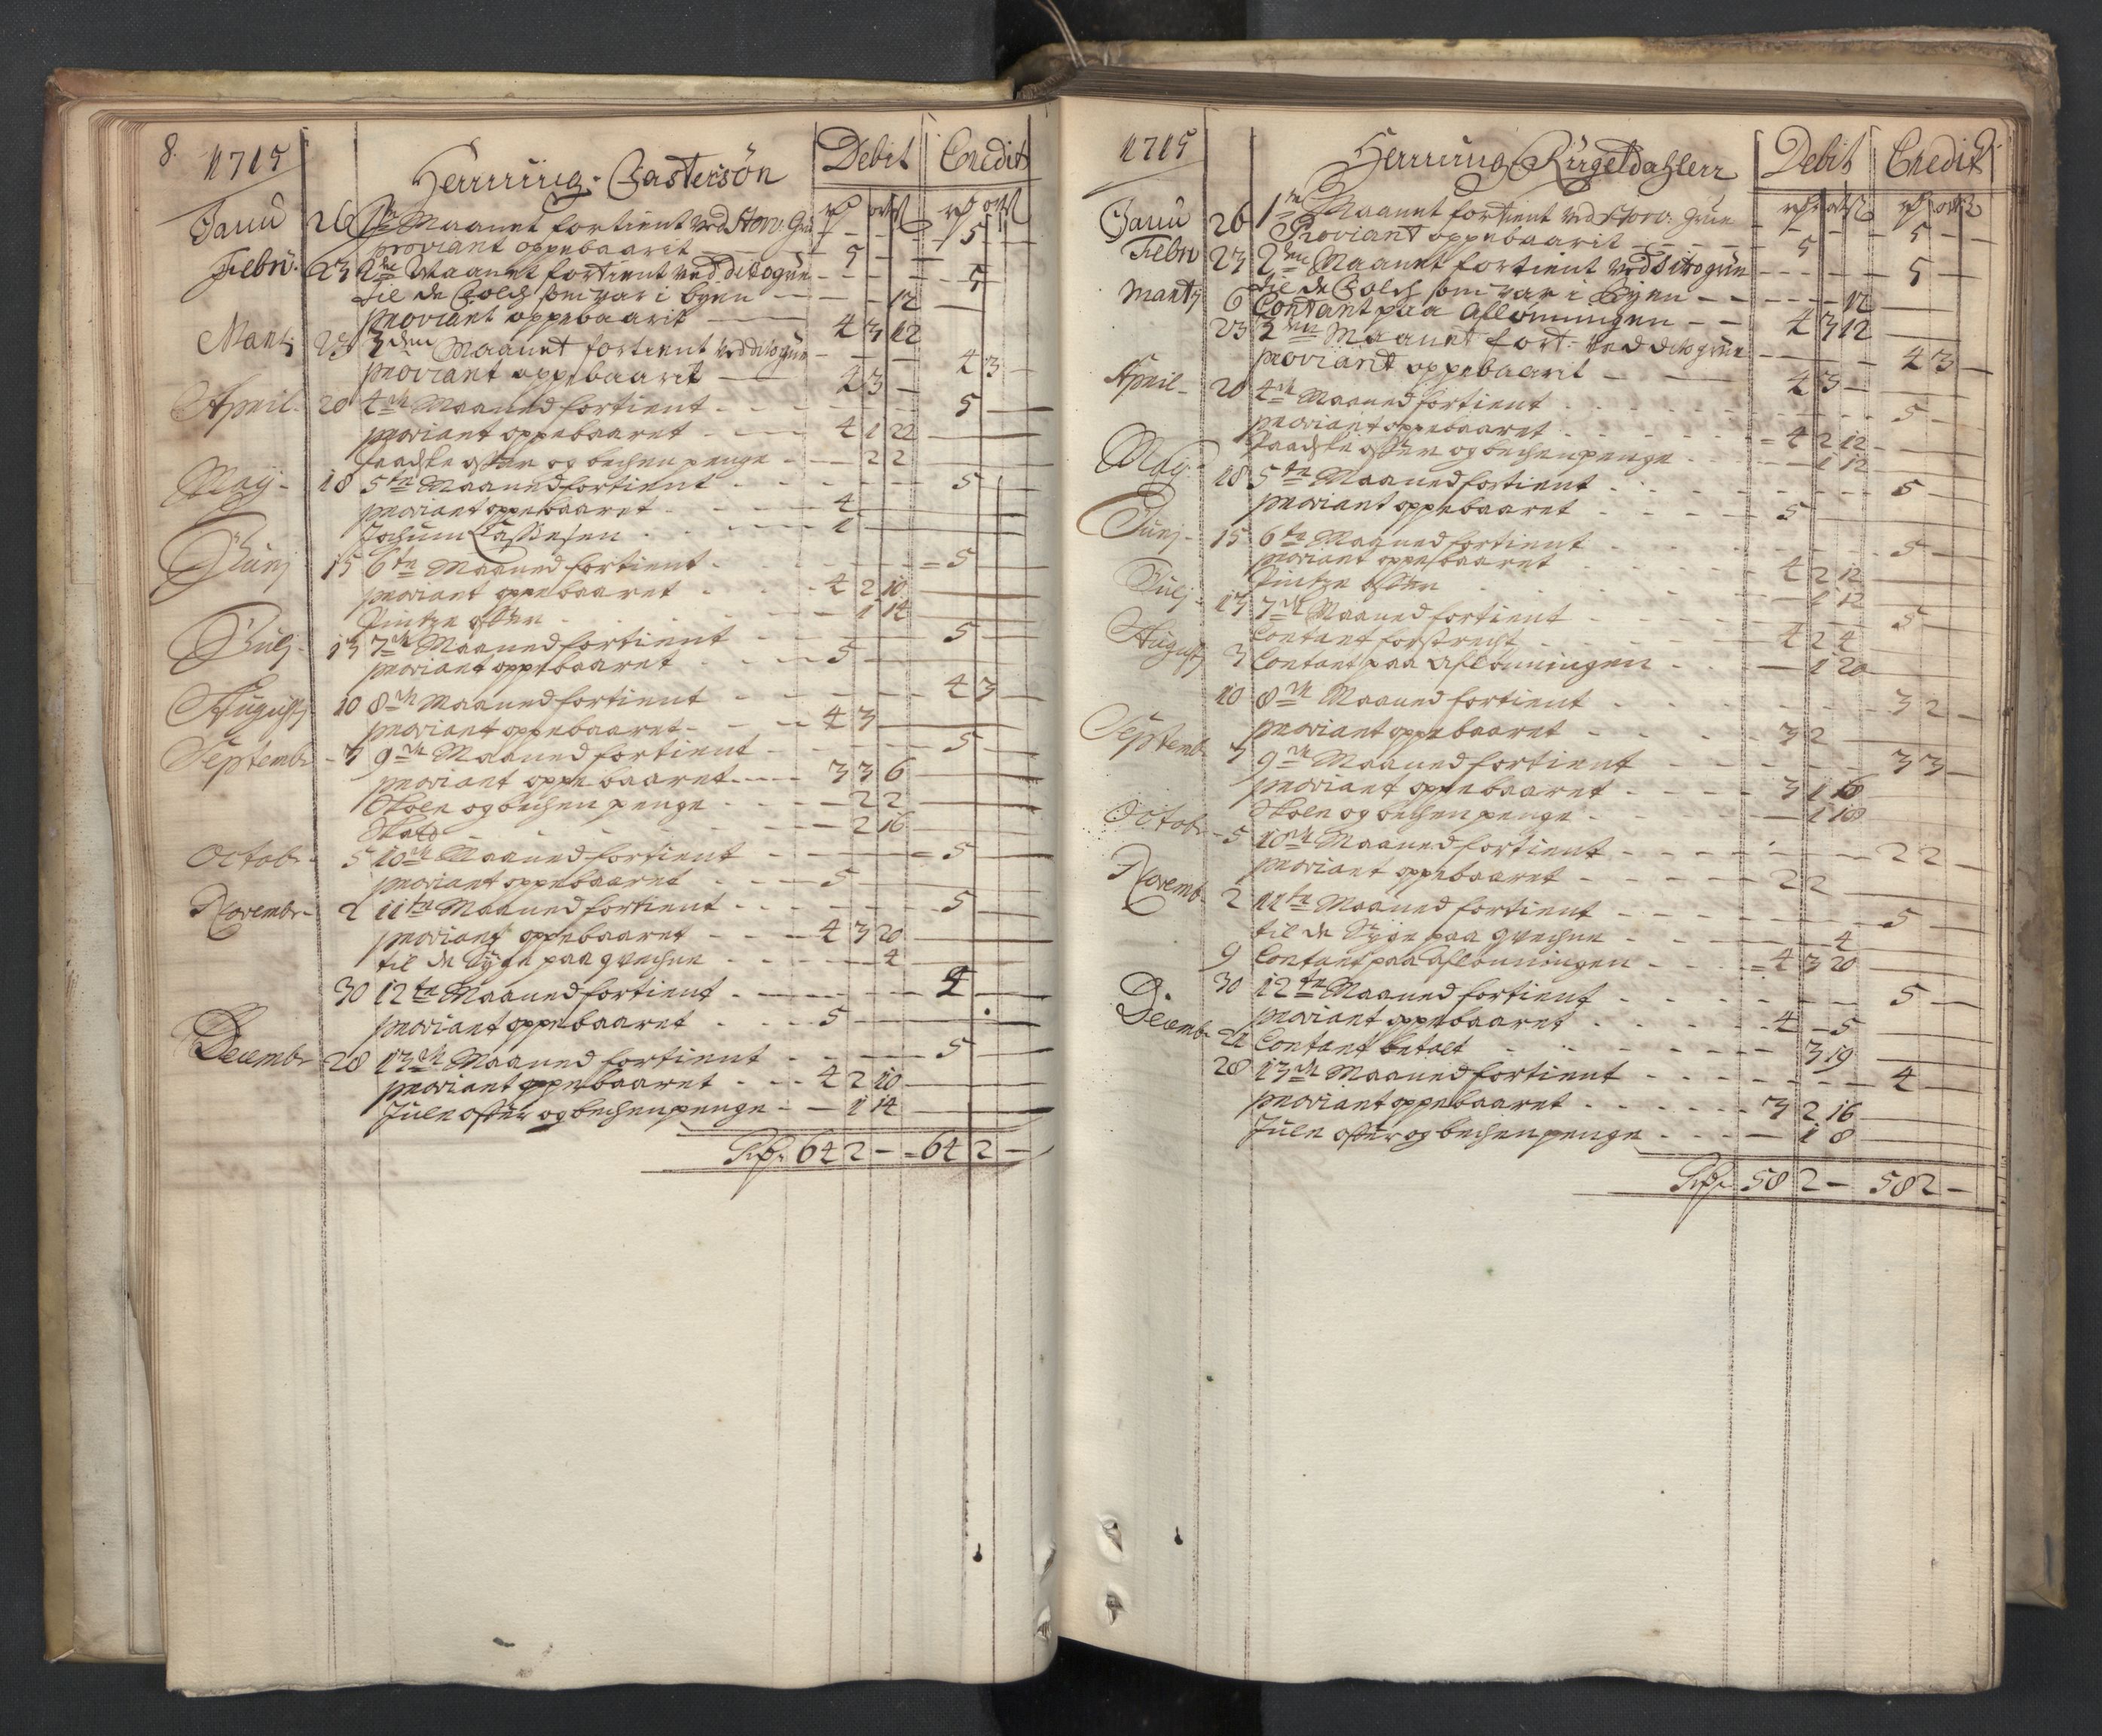 8. 1715 Henning Castersön Debit Credit
Janu 26 1te Maanet fortient ved Storv: Grue - - - 5 - -
proviant oppebaarit 5 - -
Febru. 23 2den Maanet fortient ved dito grue - - - 5
til de Folch som var i byen - - 12
proviant oppebaarit 4 3 12
Martj 23 3den Maanet fortient ved dito grue - - - 4 3 -
proviant oppebaarit 4 3 -
April 20 4de Maaned fortient 5 -
proviant oppebaaret 4 1 22
Paaske offer og bechen penge - 2 2
May 18 5te Maaned fortient 5 -
proviant oppebaaret 4
Jochum 1
Junj 15 6te Maaned fortient 5
proviant oppebaaret 4 2 10
Pintze offer 1 14
Julj 13 7de Maaned fortient 5 -
proviant oppebaaret 5
August 10 8de Maaned fortient 4 3 -
proviant oppebaaret 4 3
Septembr 7 9de Maaned fortient 5 -
proviant oppebaaret 3 3 6
Skole og bechen penge 2 2
Skatt 2 16
Octobr 5 10de Maaned fortient 5 -
proviant oppebaaret 5
Novembr 2 11te Maaned fortient 5 -
proviant oppebaaret 4 3 20
til de Syge paa qvechne - - 4
30 12te Maaned fortient
proviant oppebaaret 5
Decembr 28 13de Maaned fortient 5
proviant oppebaaret 4 2 10
Jule offer og bechenpenge - 1 14
64 2 - 64 2 -
1715 Henning Debit Credit
Janu 26 1te Maanet fortient ved Storv: Grue 5 - -
Proviant oppebaarit 5
Febru 23 2den Maanet fortient ved dito grue 5 -
til de Folch som var i Byen 12
Martj 6 Contant paa Aflønningen 4 3 12
23 3den Maanet fort: ved dito grue 4 3 -
proviant oppebaarit 4 3 -
April 20 4de Maaned fortient 5 -
proviant oppebaaret 4 2 12
Paaske offer og bechenpenge 1 12
May 18 5te Maaned fortient 5 -
proviant oppebaaret 5
Junj 15 6te Maaned fortient 5 -
proviant oppebaaret 4 2 12
Pintze offer 1 12
Julj 13 7de Maaned fortient 5 -
Contant forstrecht 4 2 4
August 3 Contant paa aflønningen - 1 20
10 8de Maaned fortient 3 2 -
proviant oppebaaret 3 2
Septembr 7 9de Maaned fortient 3 3 -
proviant oppebaaret 3 1 6
Skole og bechen penge - 1 18
Octobr 5 10de Maaned fortient 2 2 -
proviant oppebaaret 2 2
Novembr 2 11te Maaned fortient 5 -
til de Syge paa qvechne - - 4
9 Contant paa aflønningen 4 3 20
30 12te Maaned fortient 5 -
proviant oppebaaret 4 - 5
Decembr 21 Contant betalt 3 19
28 13de Maaned fortient 4 -
proviant oppebaaret 3 2 16
Jule offer og bechenpenge - 1 8
58 2 - 58 2 -